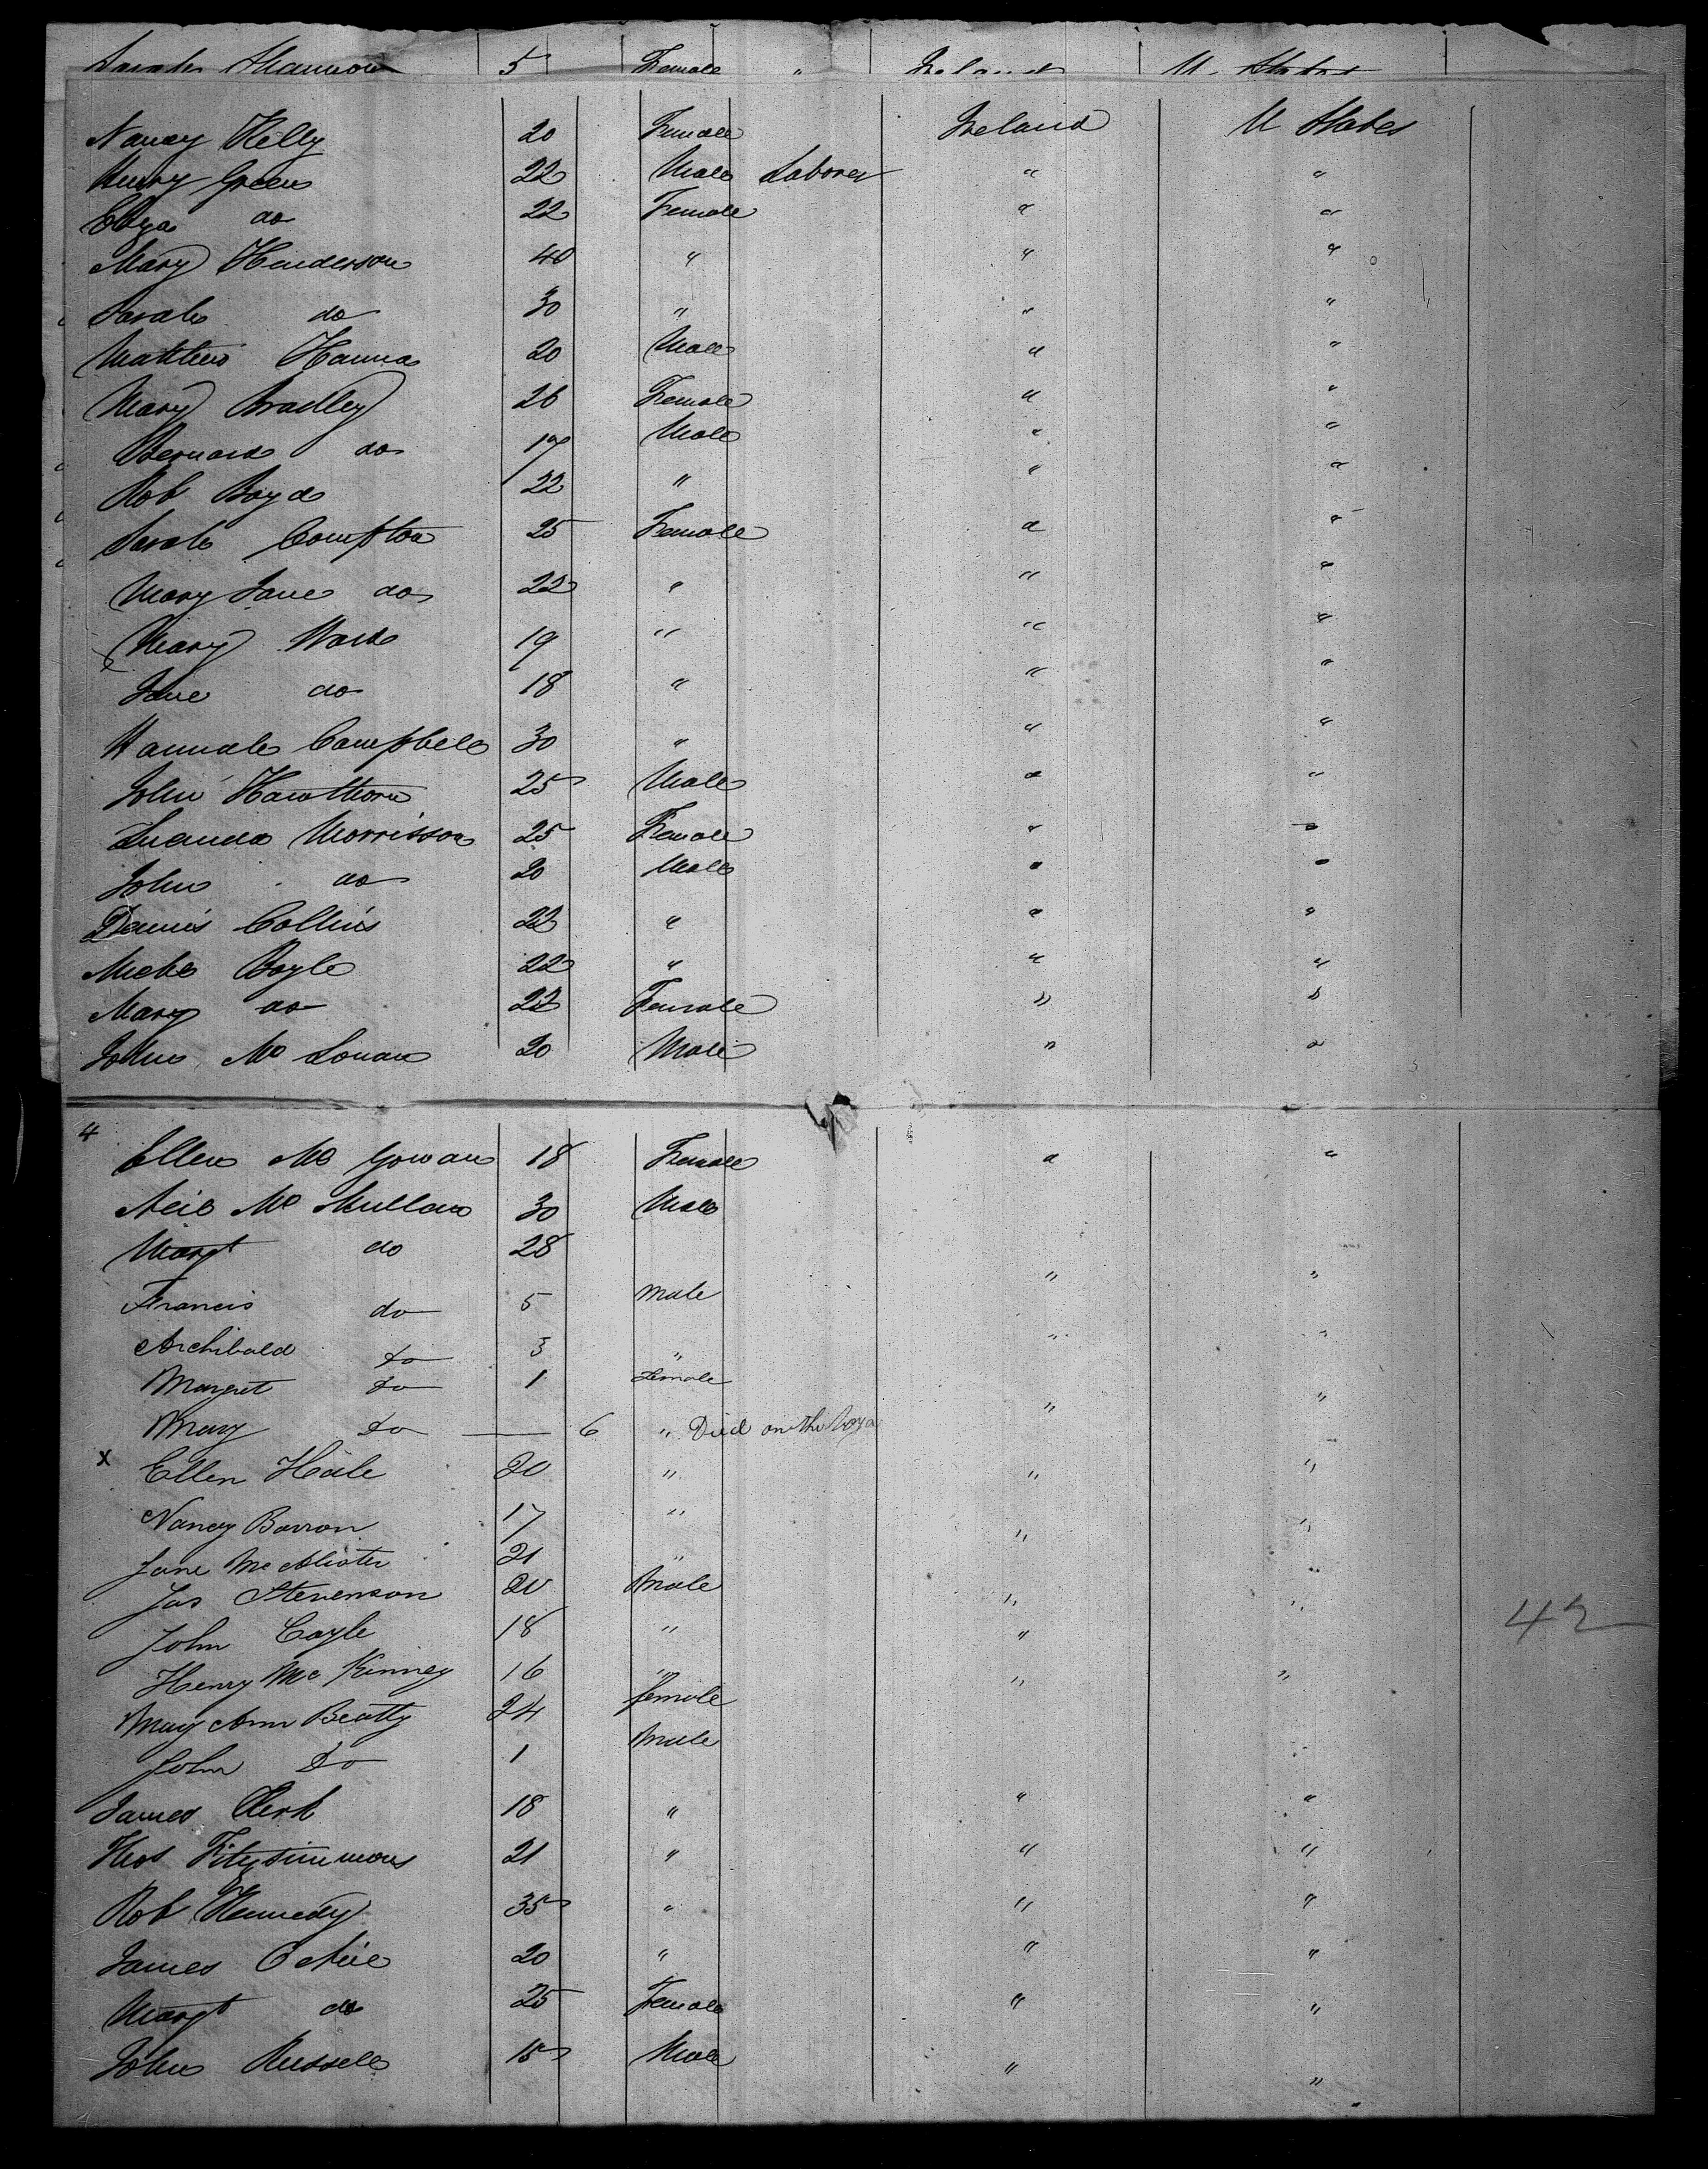 Sarah Shannon 5 Female " Ireland U. States
Nancy Kelly 20 Female Ireland U States
Henry Green 22 Male Laborer " "
Eliza do 22 Female " "
Mary Henderson 40 " " "
Sarah do 30 " " "
Matthew Hanna 20 Male " "
Mary Bradley 26 Female " "
Bernard do 17 Male " "
Rob Boyd 22 " " "
Sarah Compton 25 Female " "
Mary Jane do 22 " " "
Mary Ward 19 " " "
Jane do 18 " " "
Hannah Campbell 30 " " "
John Hawthorn 25 Male " "
Morrisson 25 Female " "
John do 20 Male " "
Dennis Collins 22 " " "
Boyle 22 " " "
Mary do 22 Female " "
John Mc 20 Male " "
4
Ellen Mc Gowan 18 Female " "
Neil Mc Mullan 30 Male
Margt do 28
Francis do 5 male " "
Archibald do 3 " " "
Margret do 1 Female
Mary do — 6 " Died on the Voya " "
x Ellen 20 " " "
Nancy Barron 17 " " "
Jane Mc Alister 21 "
Jas Stevenson 20 Male " "
John Coyle 18 " " "
42
Henry Mc Kinney 16 " " "
Mary Ann Beatty 24 female
John do 1 Male
James 18 " " "
Thos Fitzsimmons 21 " " "
Rob Kennedy 35 " " "
James O Neil 20 " " "
Margt do 25 Female " "
John Russell 15 Male " "